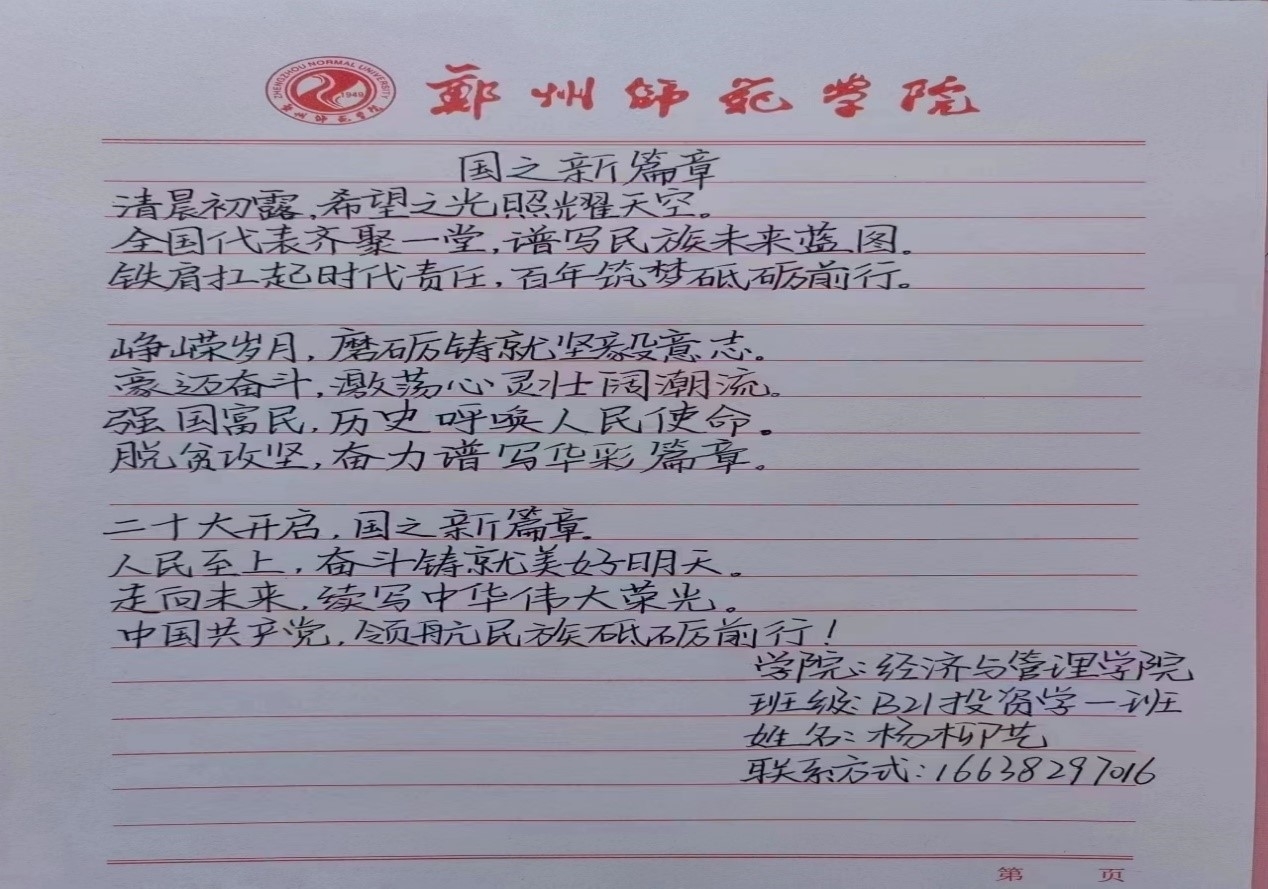 ZHENGZHOU NORMAL UNIVERSITY
1949
郑州师范学院
郑州师范学院
国之新篇章
清晨初露,希望之光照耀天空。
全国代表齐聚一堂,谱写民族未来蓝图。
铁肩扛起时代责任,百年筑梦砥砺前行。
峥嵘岁月,磨砺铸就坚毅意志。
豪迈奋斗,激荡心灵壮阔潮流。
强国富民,历史呼唤人民使命。
脱贫攻坚,奋力谱写华彩篇章。
二十大开启,国之新篇章.
人民至上,奋斗铸就美好明天。
走向未来,续写中华伟大荣光。
中国共产党,领航民族砥砺前行!
学院:经济与管理学院
班级:B21投资学一班
姓名:杨柳艺
联系方式:16638297016
第 页